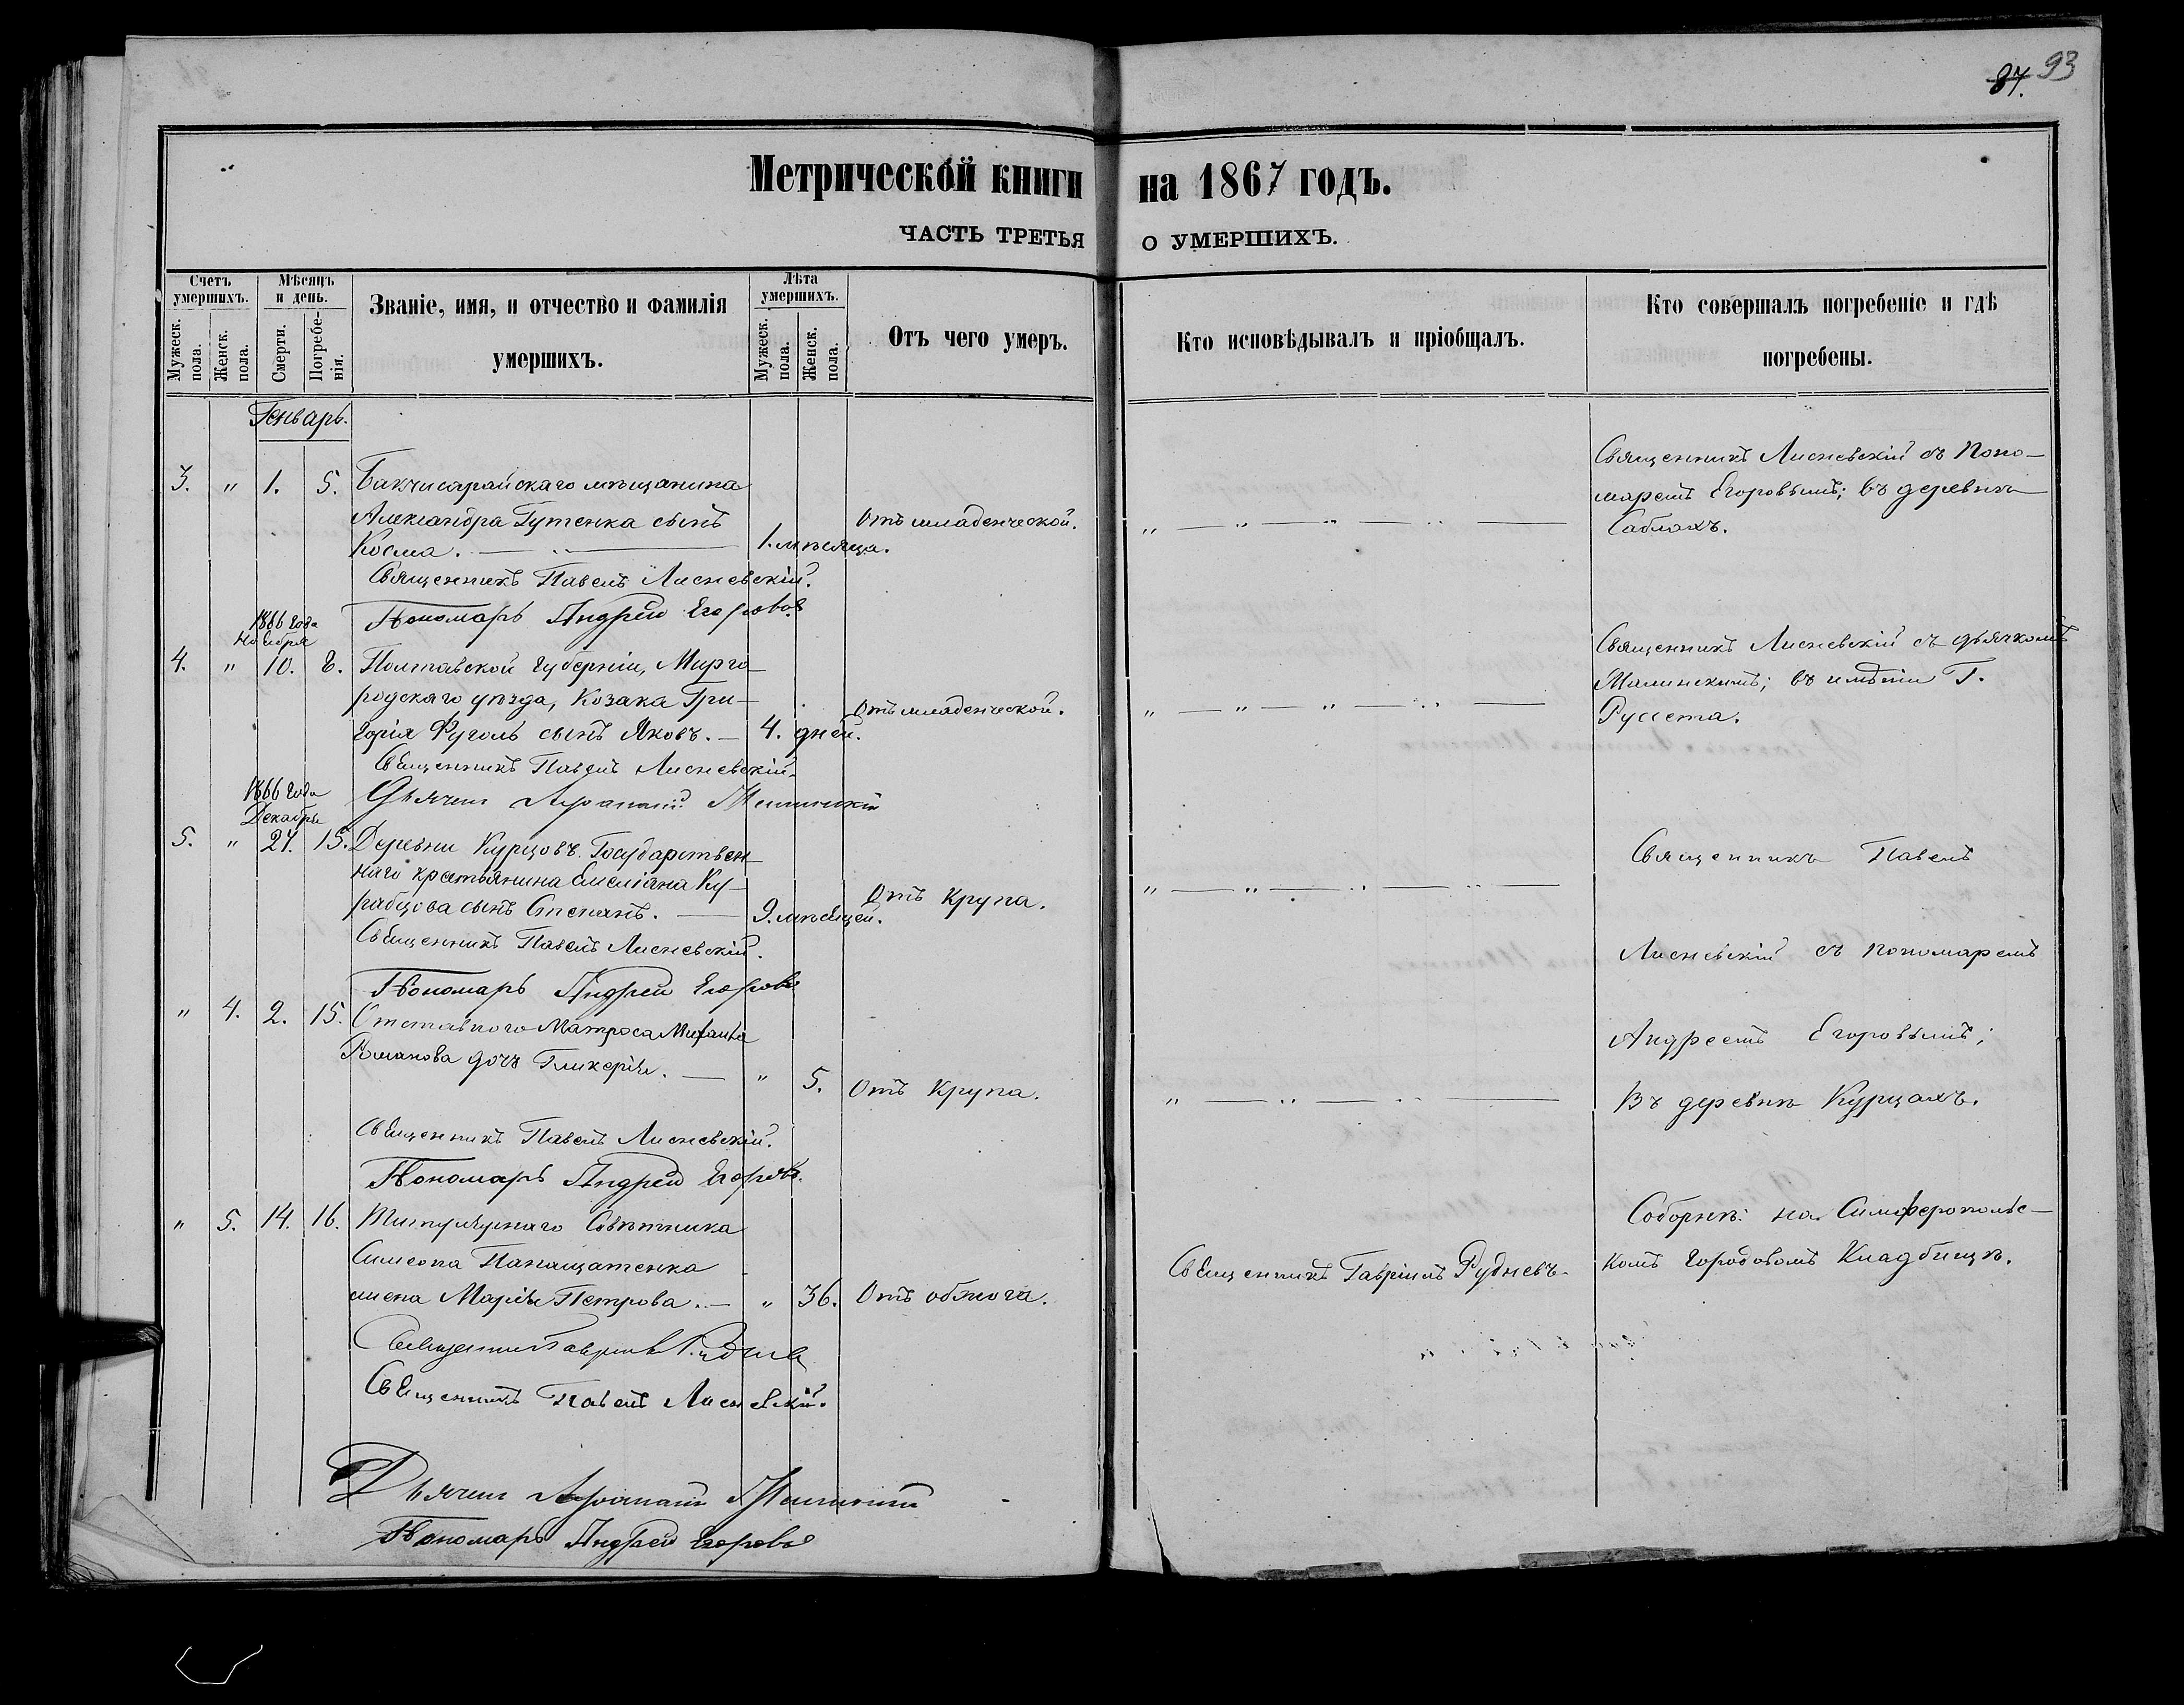 87. 93
Метрической книги на 1867 годъ.
ЧАСТЬ ТРЕТЬЯ О УМЕРШИХЪ.
Счетъ умершихъ.
Мужеск. пола.
Женск. пола.
Мѣсяцъ и день.
Смерти.
Погребенія.
Званіе, имя, и отчество и фамилія умершихъ.
Лѣта умершихъ.
Мужеск. пола.
Женск. пола.
Отъ чего умеръ.
Кто исповѣдывалъ и пріобщалъ.
Кто совершалъ погребеніе и гдѣ погребены.
Генварь.
3. " 1. 5. Бакчисарайскаго мѣщанина
Александра Гутенка сынъ
Косма. 1. мѣсяца. Отъ младенческой.
Священникъ Лисневскій съ Поно-
маремъ Егоровымъ; въ деревнѣ
Саблахъ.
Священникъ Павелъ Лисневскій.
Пономарь Андрей Егоровъ
1866 года Ноября
4. " 10. 8. Полтавской губерніи, Мирго-
родскаго уѣзда, Козака Гри-
горія Фуголь сынъ Яковъ. 4. дней. Отъ младенческой.
Священникъ Лисневскій съ дьячкомъ
Малинскимъ; въ имѣніи Г.
Руссета.
Священникъ Павелъ Лисневскій.
Дьячекъ
1866 года Декабря
5. " 24. 15. Деревни Курцовъ Государствен-
наго крестьянина Емеліана Ку-
рабцова сынъ Степанъ. 9. мѣсяцей. Отъ крупа.
Священникъ Павелъ Лисневскій.
Пономарь Андрей Егоровъ
Священникъ Павелъ
Лисневскій съ пономаремъ
Андреемъ Егоровымъ;
Въ деревнѣ Курцахъ.
" 4. 2. 15. Отставного Матроса Михаила
Романова дочь Гликерія. " 5. Отъ крупа.
Священникъ Павелъ Лисневскій.
Пономарь Андрей Егоровъ.
" 5. 14. 16. Титулярнаго Совѣтника
Симеона Папащатенка
жена Марія Петрова. " 36. Отъ обжога.
Священникъ Гавріилъ Рудневъ
Соборнѣ: на Симферопольс-
комъ городовомъ Кладбищѣ.
Священникъ Гавріилъ Рудневъ
Священникъ Павелъ Лисневскій.
Дьячекъ
Пономарь Андрей Егоровъ